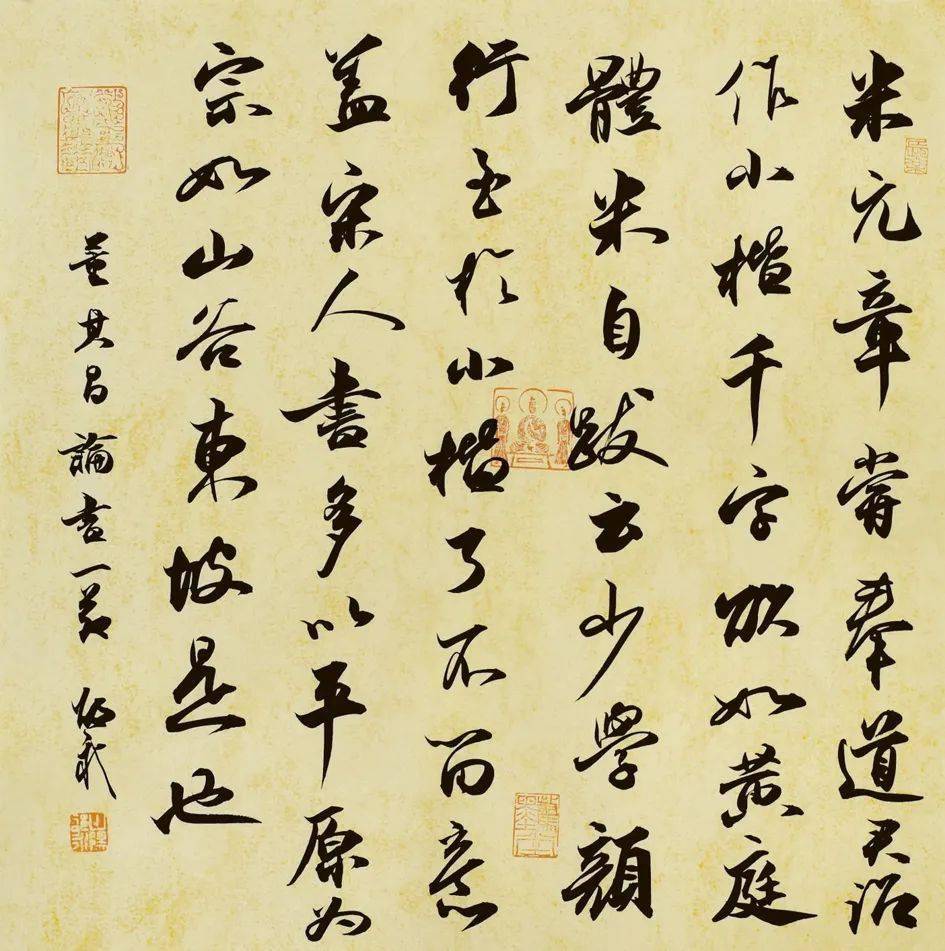 米元章嘗奉道君詔
作小楷千字欲如黄庭
體米自跋云少學顏
行至於小楷了不留意
盖宋人書多以平原为
宗如山谷東坡是也
董其昌論書一节